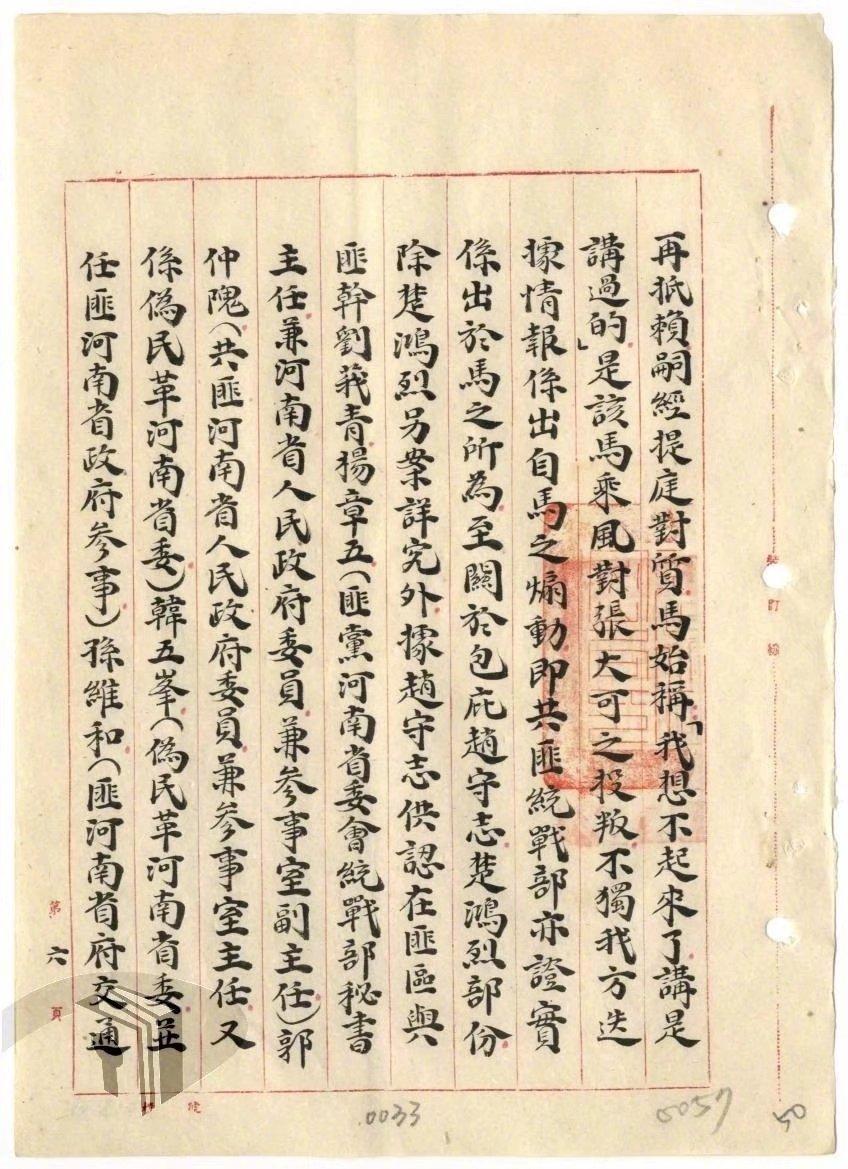 再抵賴嗣經提庭對質馬始稱「我想不起來了講是
講過的」是該馬乘風對張大可之投叛不獨我方迭
據情報係出自馬之煽動即共匪統戰部亦證實
係出於馬之所為至關於包庇趙守志楚鴻烈部份
除楚鴻烈另案詳究外據趙守志供認在匪區與
匪幹劉莪青楊章五(匪黨河南省委會統戰部秘書
主任兼河南省人民政府委員兼參事室副主任)郭
仲隗(共匪河南省人民政府委員兼參事室主任又
係偽民革河南省委)韓五峯(偽民革河南省委並
任匪河南省政府參事)孫維和(匪河南省府交通
第六頁
裝訂線
0033
0057
50